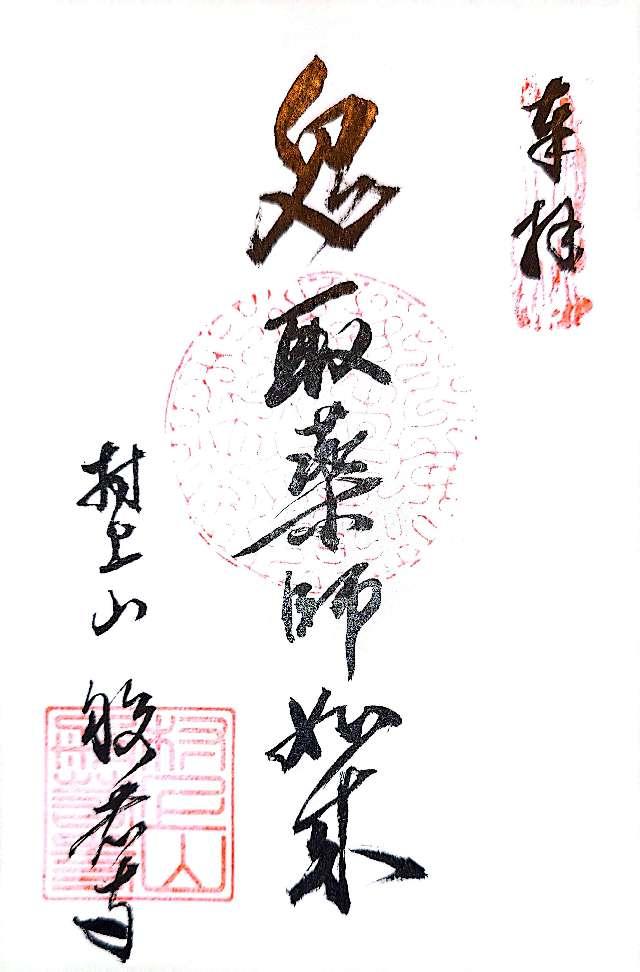 奉拝
鬼取薬師如来
村上山 般若寺